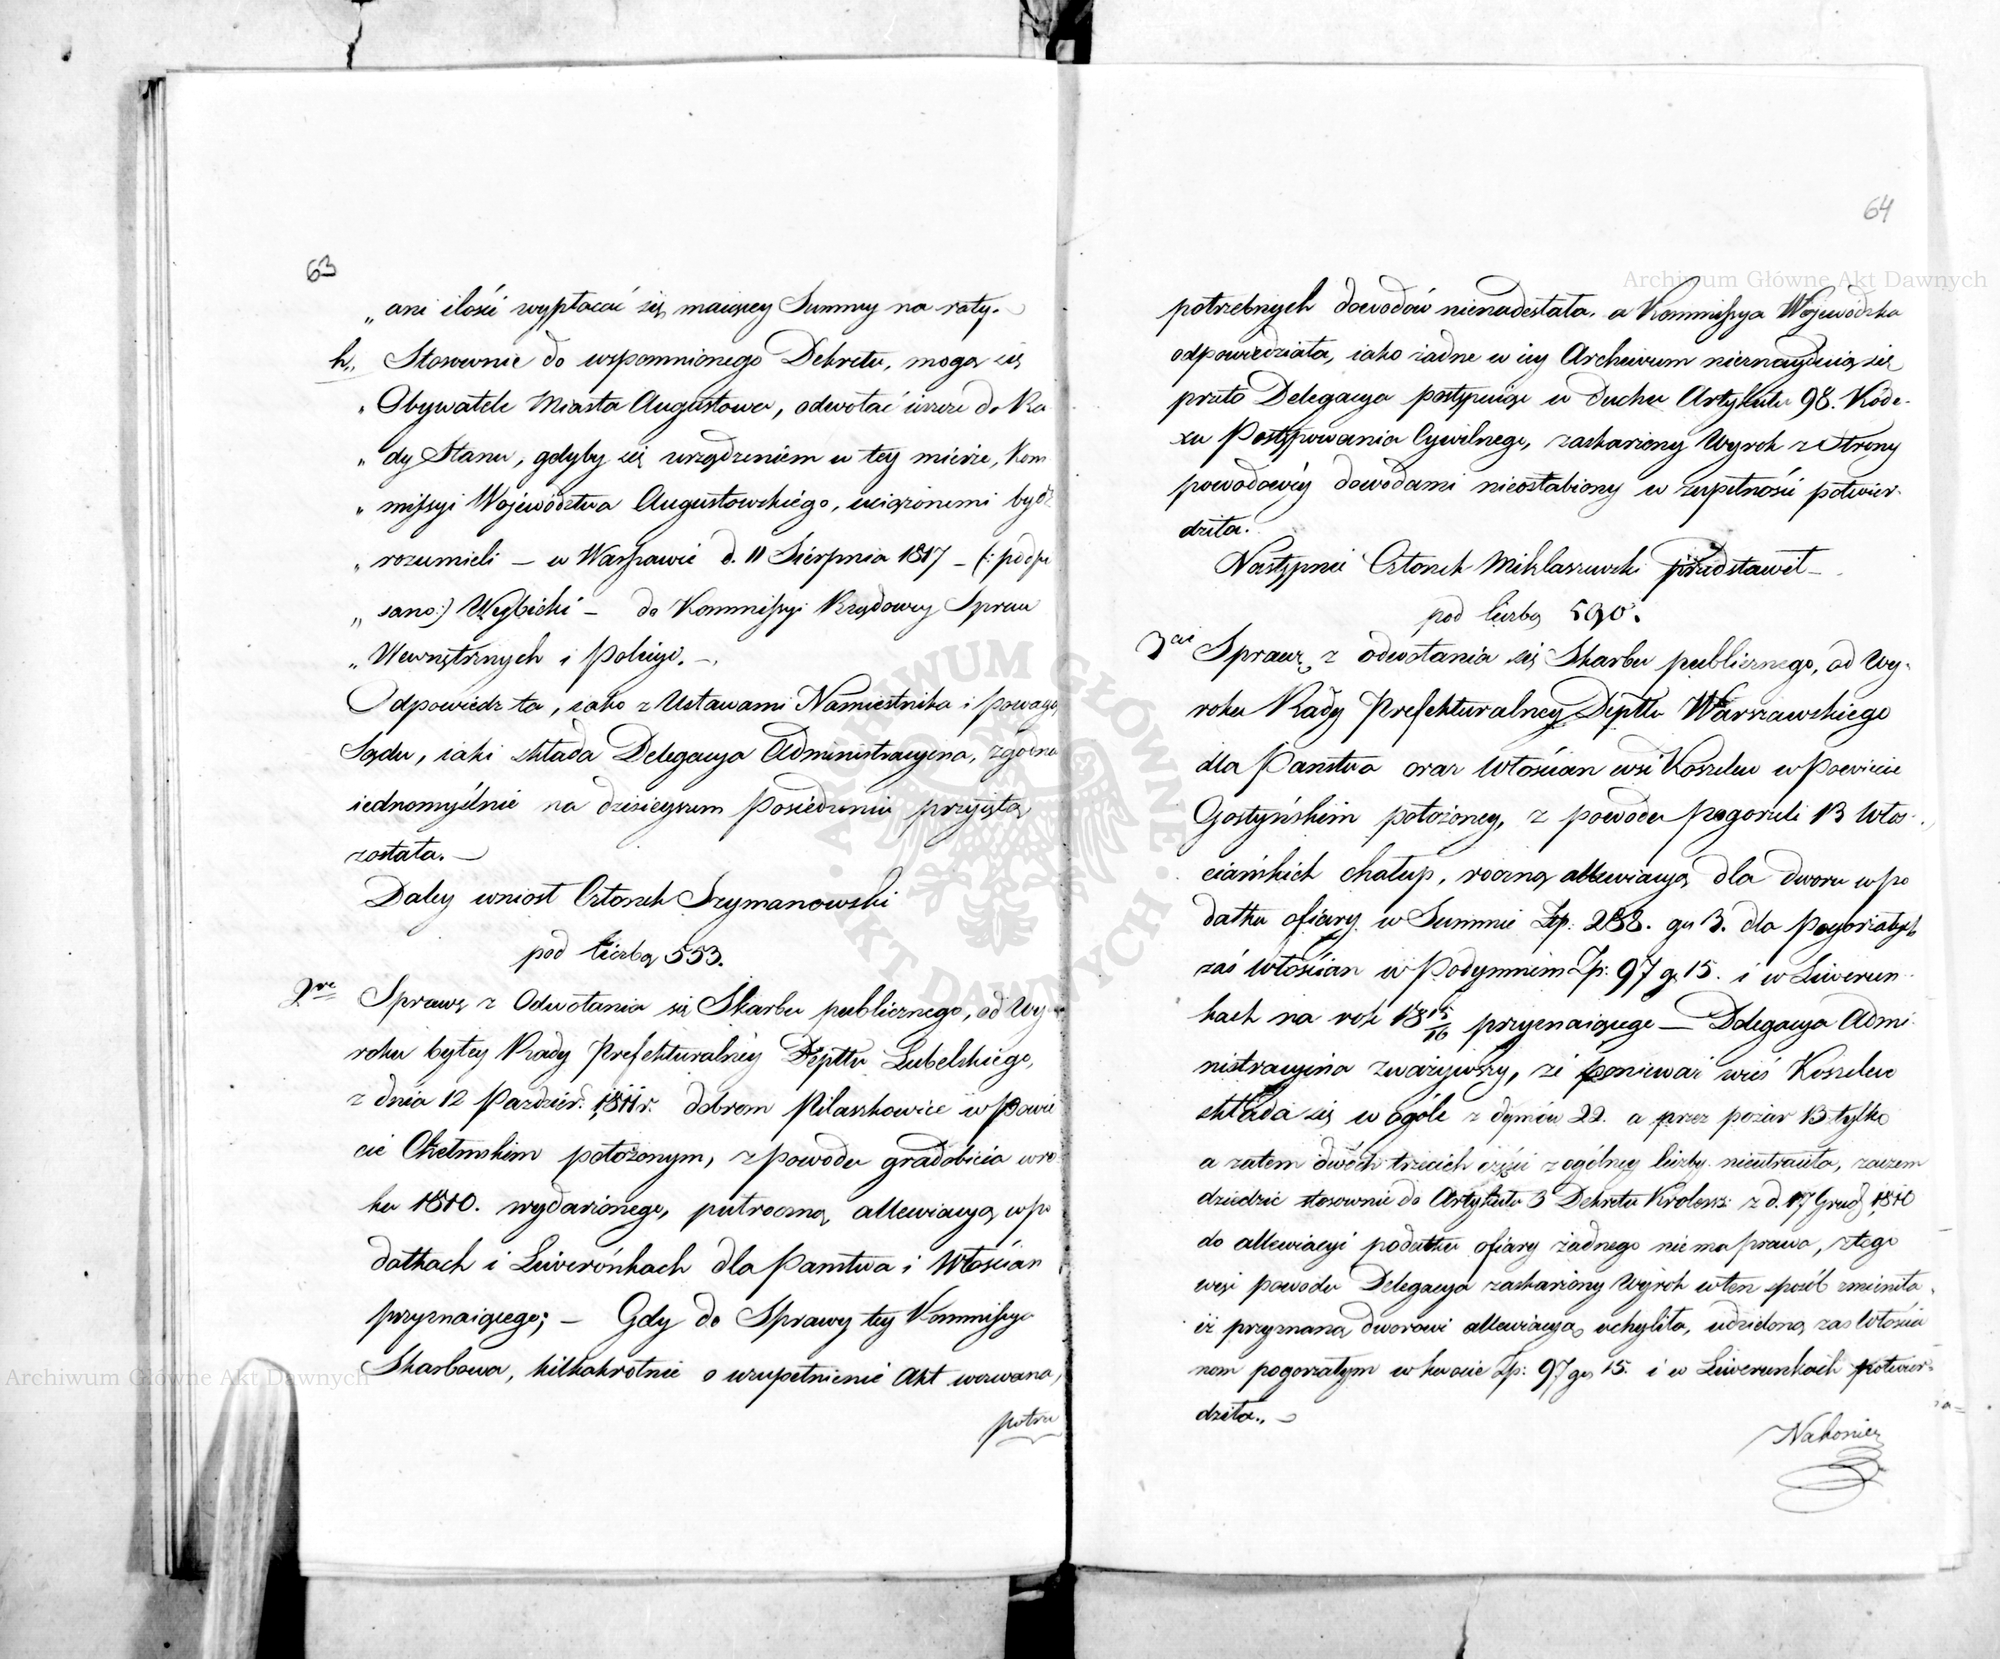 63
„ ani ilości wypłacać się maiącey Summy na raty. —
h., Stosownie do wspomnionego Dekretu, mogą się
„ Obywatele Miasta Augustowa, odwołać ieszcze do Ra
„ dy Stanu, gdyby się urządzeniem w tey mierze, Kom
„ missyi Województwa Augustowskiego, uciążonemi bydź
„ rozumieli — w Warszawie d. 11 Sierpnia 1817 — (: podpi
„ sano:) Wybicki — do Kommissyi Rządowey Spraw
„ Wewnętrznych i Policyi. —
Odpowiedz ta, iako z Ustawami Namiestnika i powagą
Sądu, iaki składa Delegacya Administracyina, zgodna
iednomyślnie na dzisieyszem Posiedzeniu przyiętą
została. —
Daley wniosł Członek Szymanowski
pod liczbą 553.
2re Sprawę z Odwołania się Skarbu publicznego, od Wy
roku byłey Rady Prefekturalney Depttu Lubelskiego,
z dnia 12 Paździer: 1811 r. dobrom Pilaszkowice w Powie
cie Chełmskim położonym, z powodu gradobicia w ro
ku 1810. wydarzonego, pułroczną allewiacyą w po
datkach i Liwerónkach dla Państwa i Włościan
przyznaiącego; — Gdy do Sprawy tey Kommissya
Skarbowa, kilkakrotnie o uzupełnienie Akt wezwana,
potrze
64
potrzebnych dowodów nienadesłała, a Kommissya Wojewódzka
odpowiedziała, iako żadne w iey Archiwum nieznayduią się
przeto Delegacya postępuiąc w duchu Artykułu 98. Kode-
xu Postępowania Cywilnego, zaskarżony Wyrok z Strony
powodowéy dowodami nieosłabiony w zupełności potwier-
dziła.
Następnie Członek Miklaszewski przedstawił —
pod liczbą 590.
3cie Sprawę z odwołania się Skarbu publicznego, od Wy-
roku Rady Prefekturalney Depttu Warszawskiego
dla Państwa oraz Włościan wsi Koszelew w Powiecie
Gostyńskim położoney, z powodu pogorzeli 13 Włoś-
ciańskich chałup, roczną allewiacyą dla dworu w po
datku ofiary w Summie Zp: 288. gr 3. dla pogorzałych
zaś Włościan w Podymnem Zp: 97 gr 15. i w Liwerun-
kach na rok 1815/16 przyznaiącego — Delegacya Admi-
nistracyina zważywszy, że ponieważ wieś Koszelew
składa się w ogóle z dymów 22. a przez pożar 13 tylko
a zatem dwóch trzecich części z ogólney liczby nieutraciła, zaczem
dziedzic stosownie do Artykułu 3 Dekretu Królewsk: z d. 17 Grud 1810
do allewiacyi podatku ofiary żadnego nie ma prawa, z tego
więc powodu Delegacya zaskarżony Wyrok w ten sposób zmieniła,
iż przyznaną dworowi allewiacyą uchyliła, udzieloną zaś Włościa
nom pogorzałym w kwocie Zp: 97 gr 15. i w Liwerunkach potwier-
dziła., —
Nakoniec
Archiwum Główne Akt Dawnych
Archiwum Główne Akt Dawnych
ARCHIWUM GŁÓWNE · AKT DAWNYCH ·